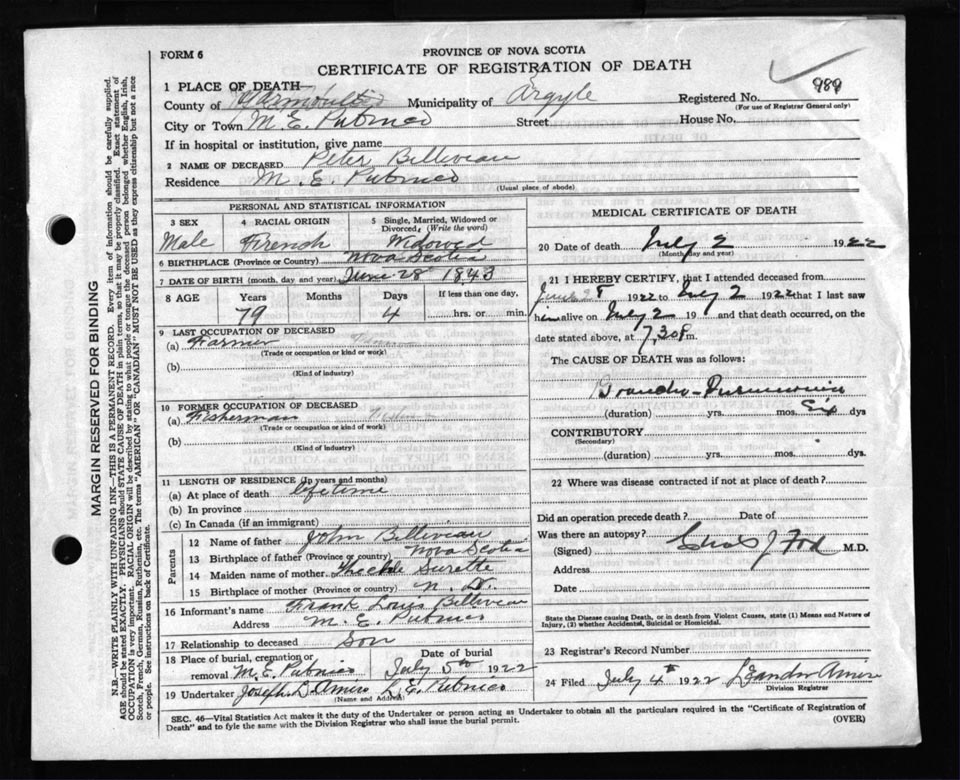 FORM 6
PROVINCE OF NOVA SCOTIA
CERTIFICATE OF REGISTRATION OF DEATH
989
1 PLACE OF DEATH—
County of Yarmouth Municipality of Argyle Registered No.
(For use of Registrar General only)
City or Town M. E. Pubnico Street House No.
If in hospital or institution, give name
2 NAME OF DECEASED Peter Belliveau
Residence M. E Pubnico
(Usual place of abode)
PERSONAL AND STATISTICAL INFORMATION
3 SEX 4 RACIAL ORIGIN 5 Single, Married, Widowed or Divorced: (Write the word)
Male French Widowed
6 BIRTHPLACE (Province or Country) Nova Scotia
7 DATE OF BIRTH (month, day and year) June 28 1843
8 AGE Years Months Days If less than one day,
79 4 hrs. or min.
9 LAST OCCUPATION OF DECEASED
(a) Farmer
(Trade or occupation or kind or work)
(b)
(Kind of industry)
10 FORMER OCCUPATION OF DECEASED
(a) Fisherman
(Trade or occupation or kind or work)
(b)
(Kind of industry)
11 LENGTH OF RESIDENCE (In years and months)
(a) At place of death lifetime
(b) In province
(c) In Canada (if an immigrant)
Parents
12 Name of father John Belliveau
13 Birthplace of father (Province or country) Nova Scotia
14 Maiden name of mother Surette
15 Birthplace of mother (Province or country) N. S.
16 Informant's name Frank Louis Belliveau
Address M. E. Pubnico
17 Relationship to deceased Son
18 Place of burial, cremation or removal M. E. Pubnico Date of burial July 5th 1922
19 Undertaker Joseph D Amiro L. E. Pubnico
(Name and Address)
MEDICAL CERTIFICATE OF DEATH
20 Date of death July 2 1922
(Month day and year)
21 I HEREBY CERTIFY, that I attended deceased from
1922 to July 2 1922 that I last saw
him alive on July 2 19 and that death occurred, on the
date stated above, at 7,30 P m.
The CAUSE OF DEATH was as follows:
Broncho-Pneumonia
(duration) yrs. mos. Six dys
CONTRIBUTORY
(Secondary)
(duration) yrs. mos. dys.
22 Where was disease contracted if not at place of death?
Did an operation precede death? Date of
Was there an autopsy?
(Signed) Chas J Fox M.D.
Address
Date
State the Disease causing Death, or in death from Violent Causes, state (1) Means and Nature of
Injury, (2) whether Accidental, Suicidal or Homicidal.
23 Registrar's Record Number
24 Filed July 4 1922 Leander Amiro
Division Registrar
SEC. 46—Vital Statistics Act makes it the duty of the Undertaker or person acting as Undertaker to obtain all the particulars required in the "Certificate of Registration of
Death" and to fyle the same with the Division Registrar who shall issue the burial permit.
(OVER)
MARGIN RESERVED FOR BINDING
N.B.—WRITE PLAINLY WITH UNFADING INK—THIS IS A PERMANENT RECORD. Every item of information should be carefully supplied.
AGE should be stated EXACTLY. PHYSICIANS should STATE CAUSE OF DEATH in plain terms, so that it may be properly classified. Exact statement of
OCCUPATION is very important. RACIAL ORIGIN will be described by stating to what people or tongue the deceased person belonged whether English, Irish,
Scotch, French, German, Russian, Ruthenian, etc. The terms "AMERICAN" OR "CANADIAN" MUST NOT BE USED as they express citizenship but not a race
or people. See instructions on back of Certificate.